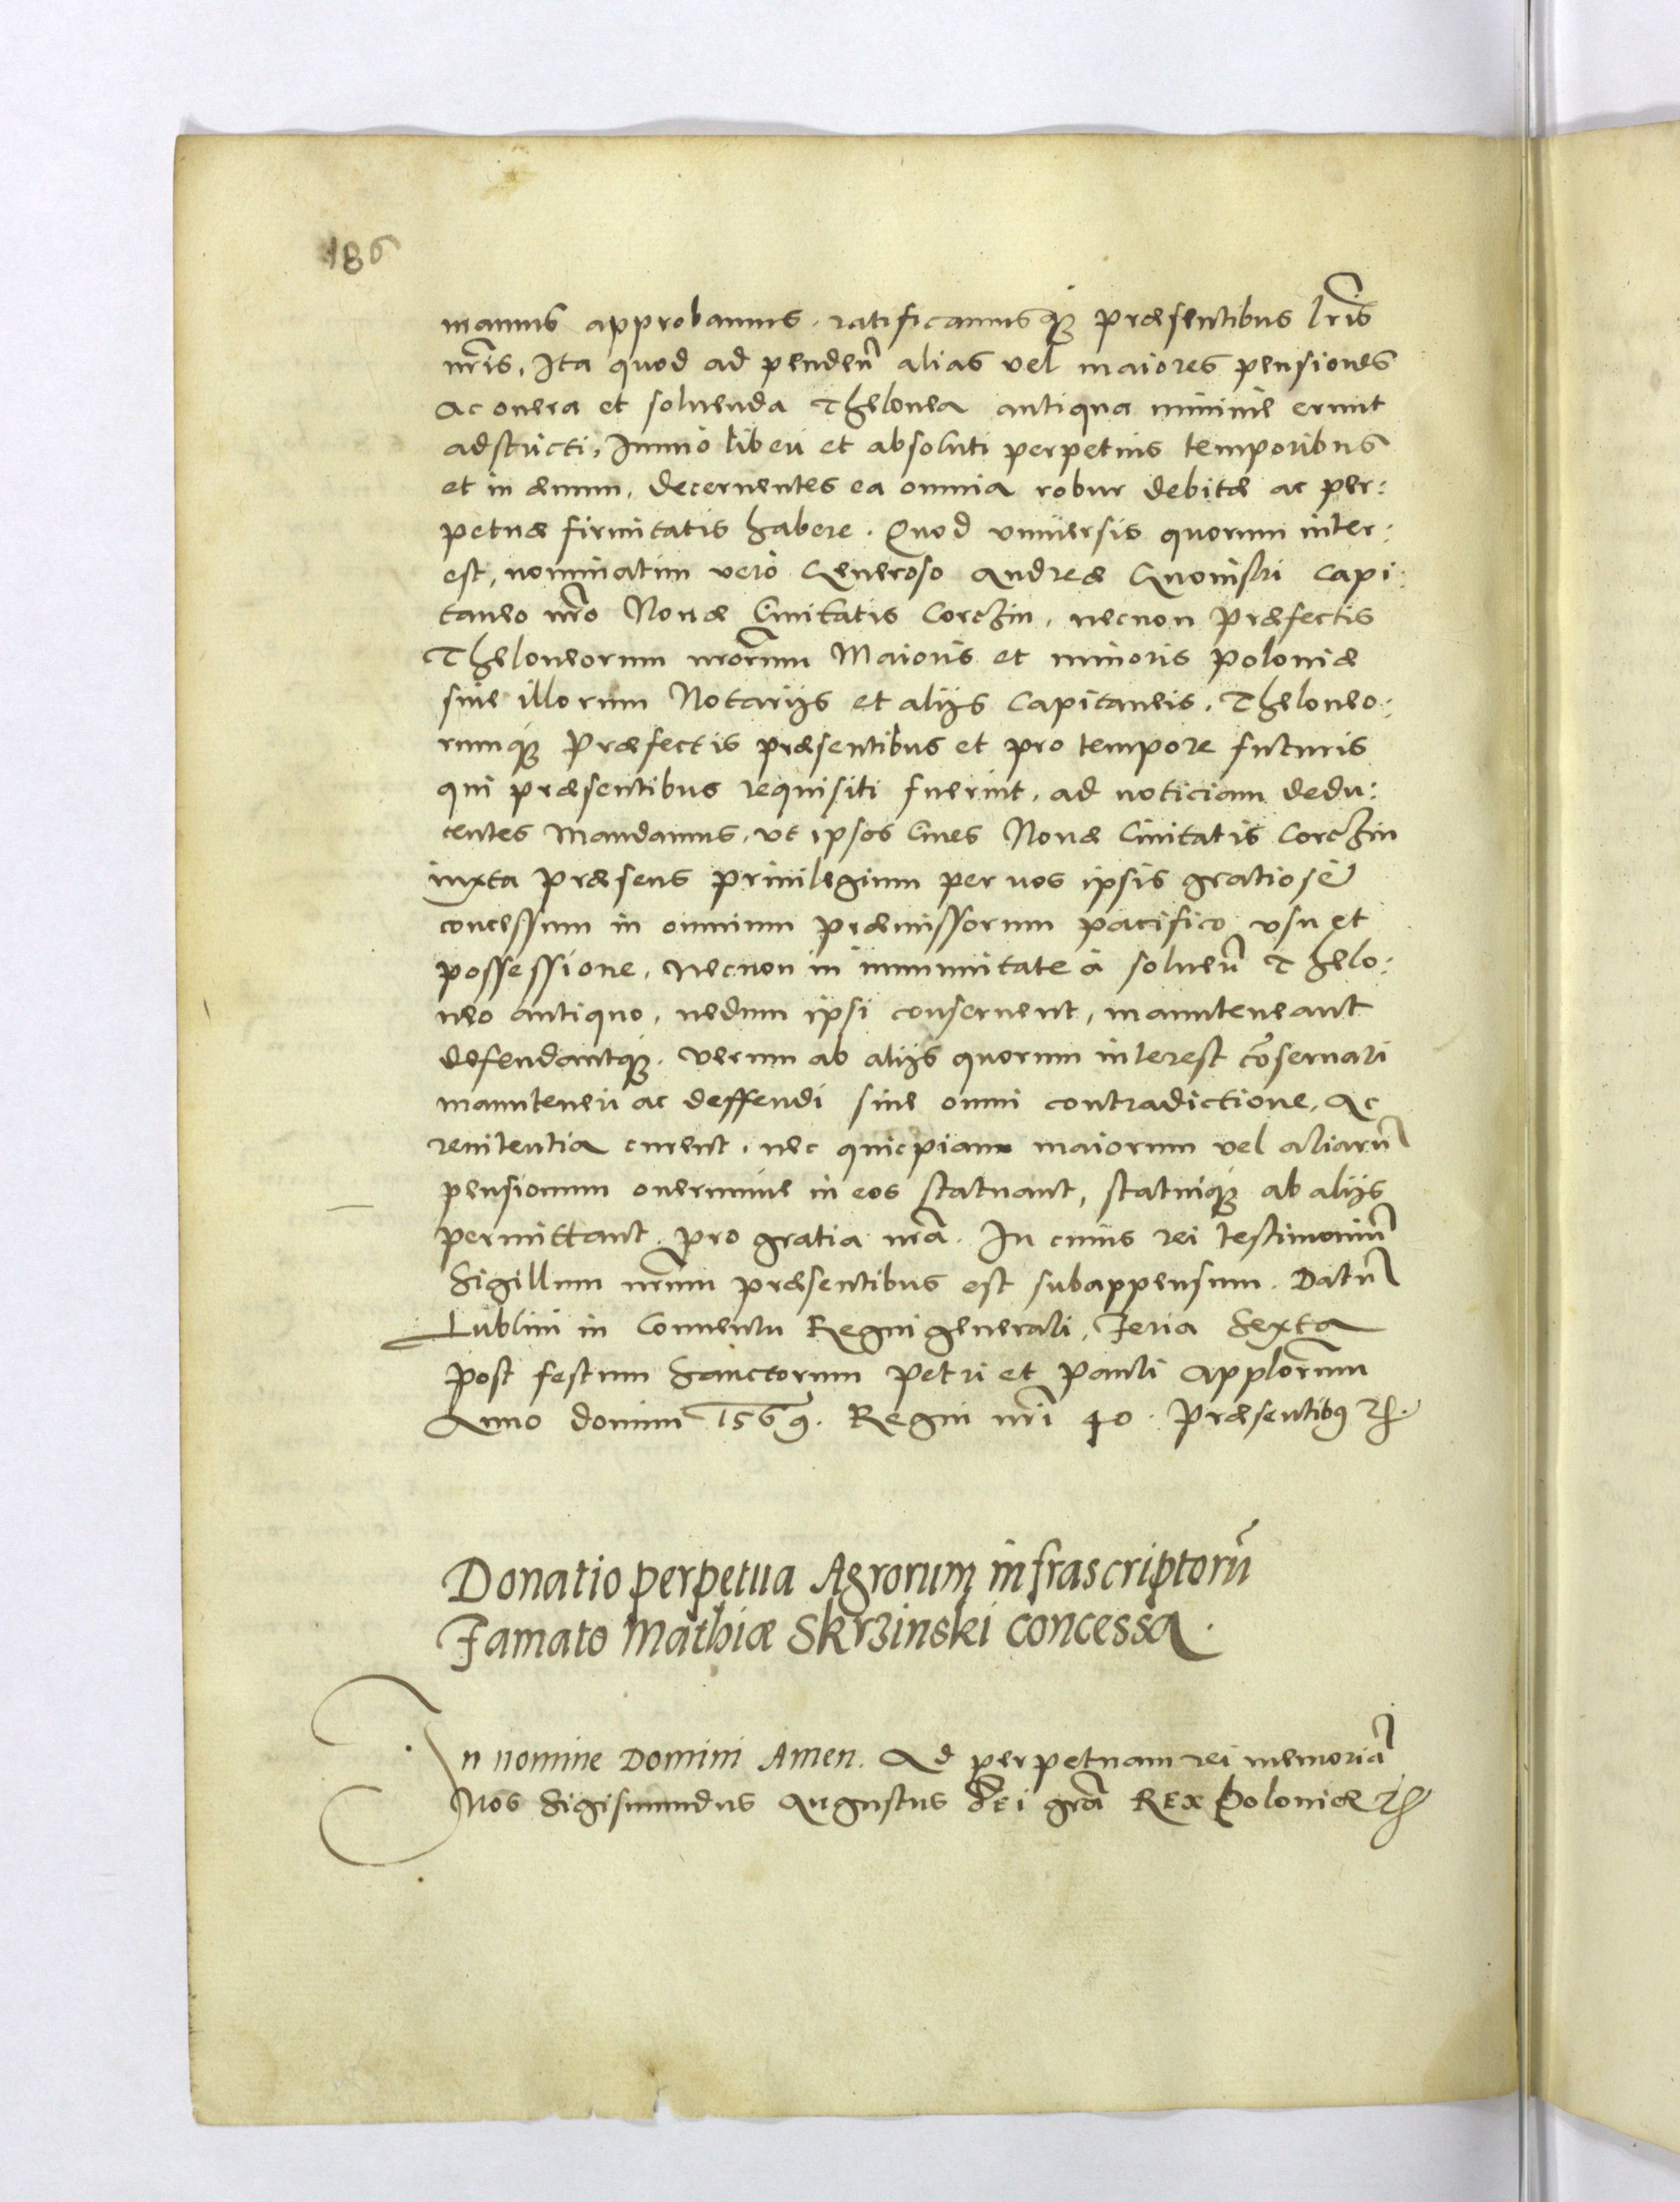 186
mamus approbamus, ratificamusq₃ præsentibus lr̃is
nr̃is, Ita quod ad penden̄ alias vel maiores pensiones
ac onera et soluenda Thelonea antiqua minime erunt
adstricti, Immò liberi et absoluti perpetuis temporibus
et in æuum, decernentes ea omnia robur debitæ ac per:
petuæ firmitatis habere. Quod vniuersis quorum inter:
est, nominatim verò Generoso Andreæ capi:
taneo nr̃o Nouæ Ciuitatis Corczin, necnon Præfectis
Theloneorum nr̃orum Maioris et minoris Poloniæ
siue illorum Notarijs et alijs Capitaneis, Theloneo:
rumq₃ Præfectis præsentibus et pro tempore futuris
qui præsentibus requisiti fuerint, ad noticiam dedu:
centes Mandamus, vt ipsos Ciues Nouæ Ciuitatis Corczin
iuxta præsens priuilegium per nos ipsis gratiosè
concessum in omnium præmissorum pacifico vsu et
possessione, necnon in immunitate à soluen̄ Thelo:
neo antiquo, nedum ipsi conseruent, manuteneant
defendantq₃. verum ab alijs quorum interest cõseruari
manuteneri ac deffendi sine omni contradictione, Ac
renitentia curent, nec quicpiam maiorum vel aliarū
pensionum onerumúe in eos statuant, statuiq₃ ab alijs
permittant, pro gratia nr̃a. In cuius rei testimoniū
Sigillum nr̃um præsentibus est subappensum. Datū
Lublini in Conuentu Regni generali, Feria Sexta
post festum Sanctorum Petri et Pauli Applorum
Anno domini 1569. Regni nr̃i 40. Præsentibꝯ ꝛc.
Donatio perpetua Agrorum infrascriptorū
Famato Mathiæ Skrzinski concessa.
In nomine Domini Amen. Ad perpetuam rei memoriā
Nos Sigismundus Augustus dei grã Rex Poloniæ ꝛc